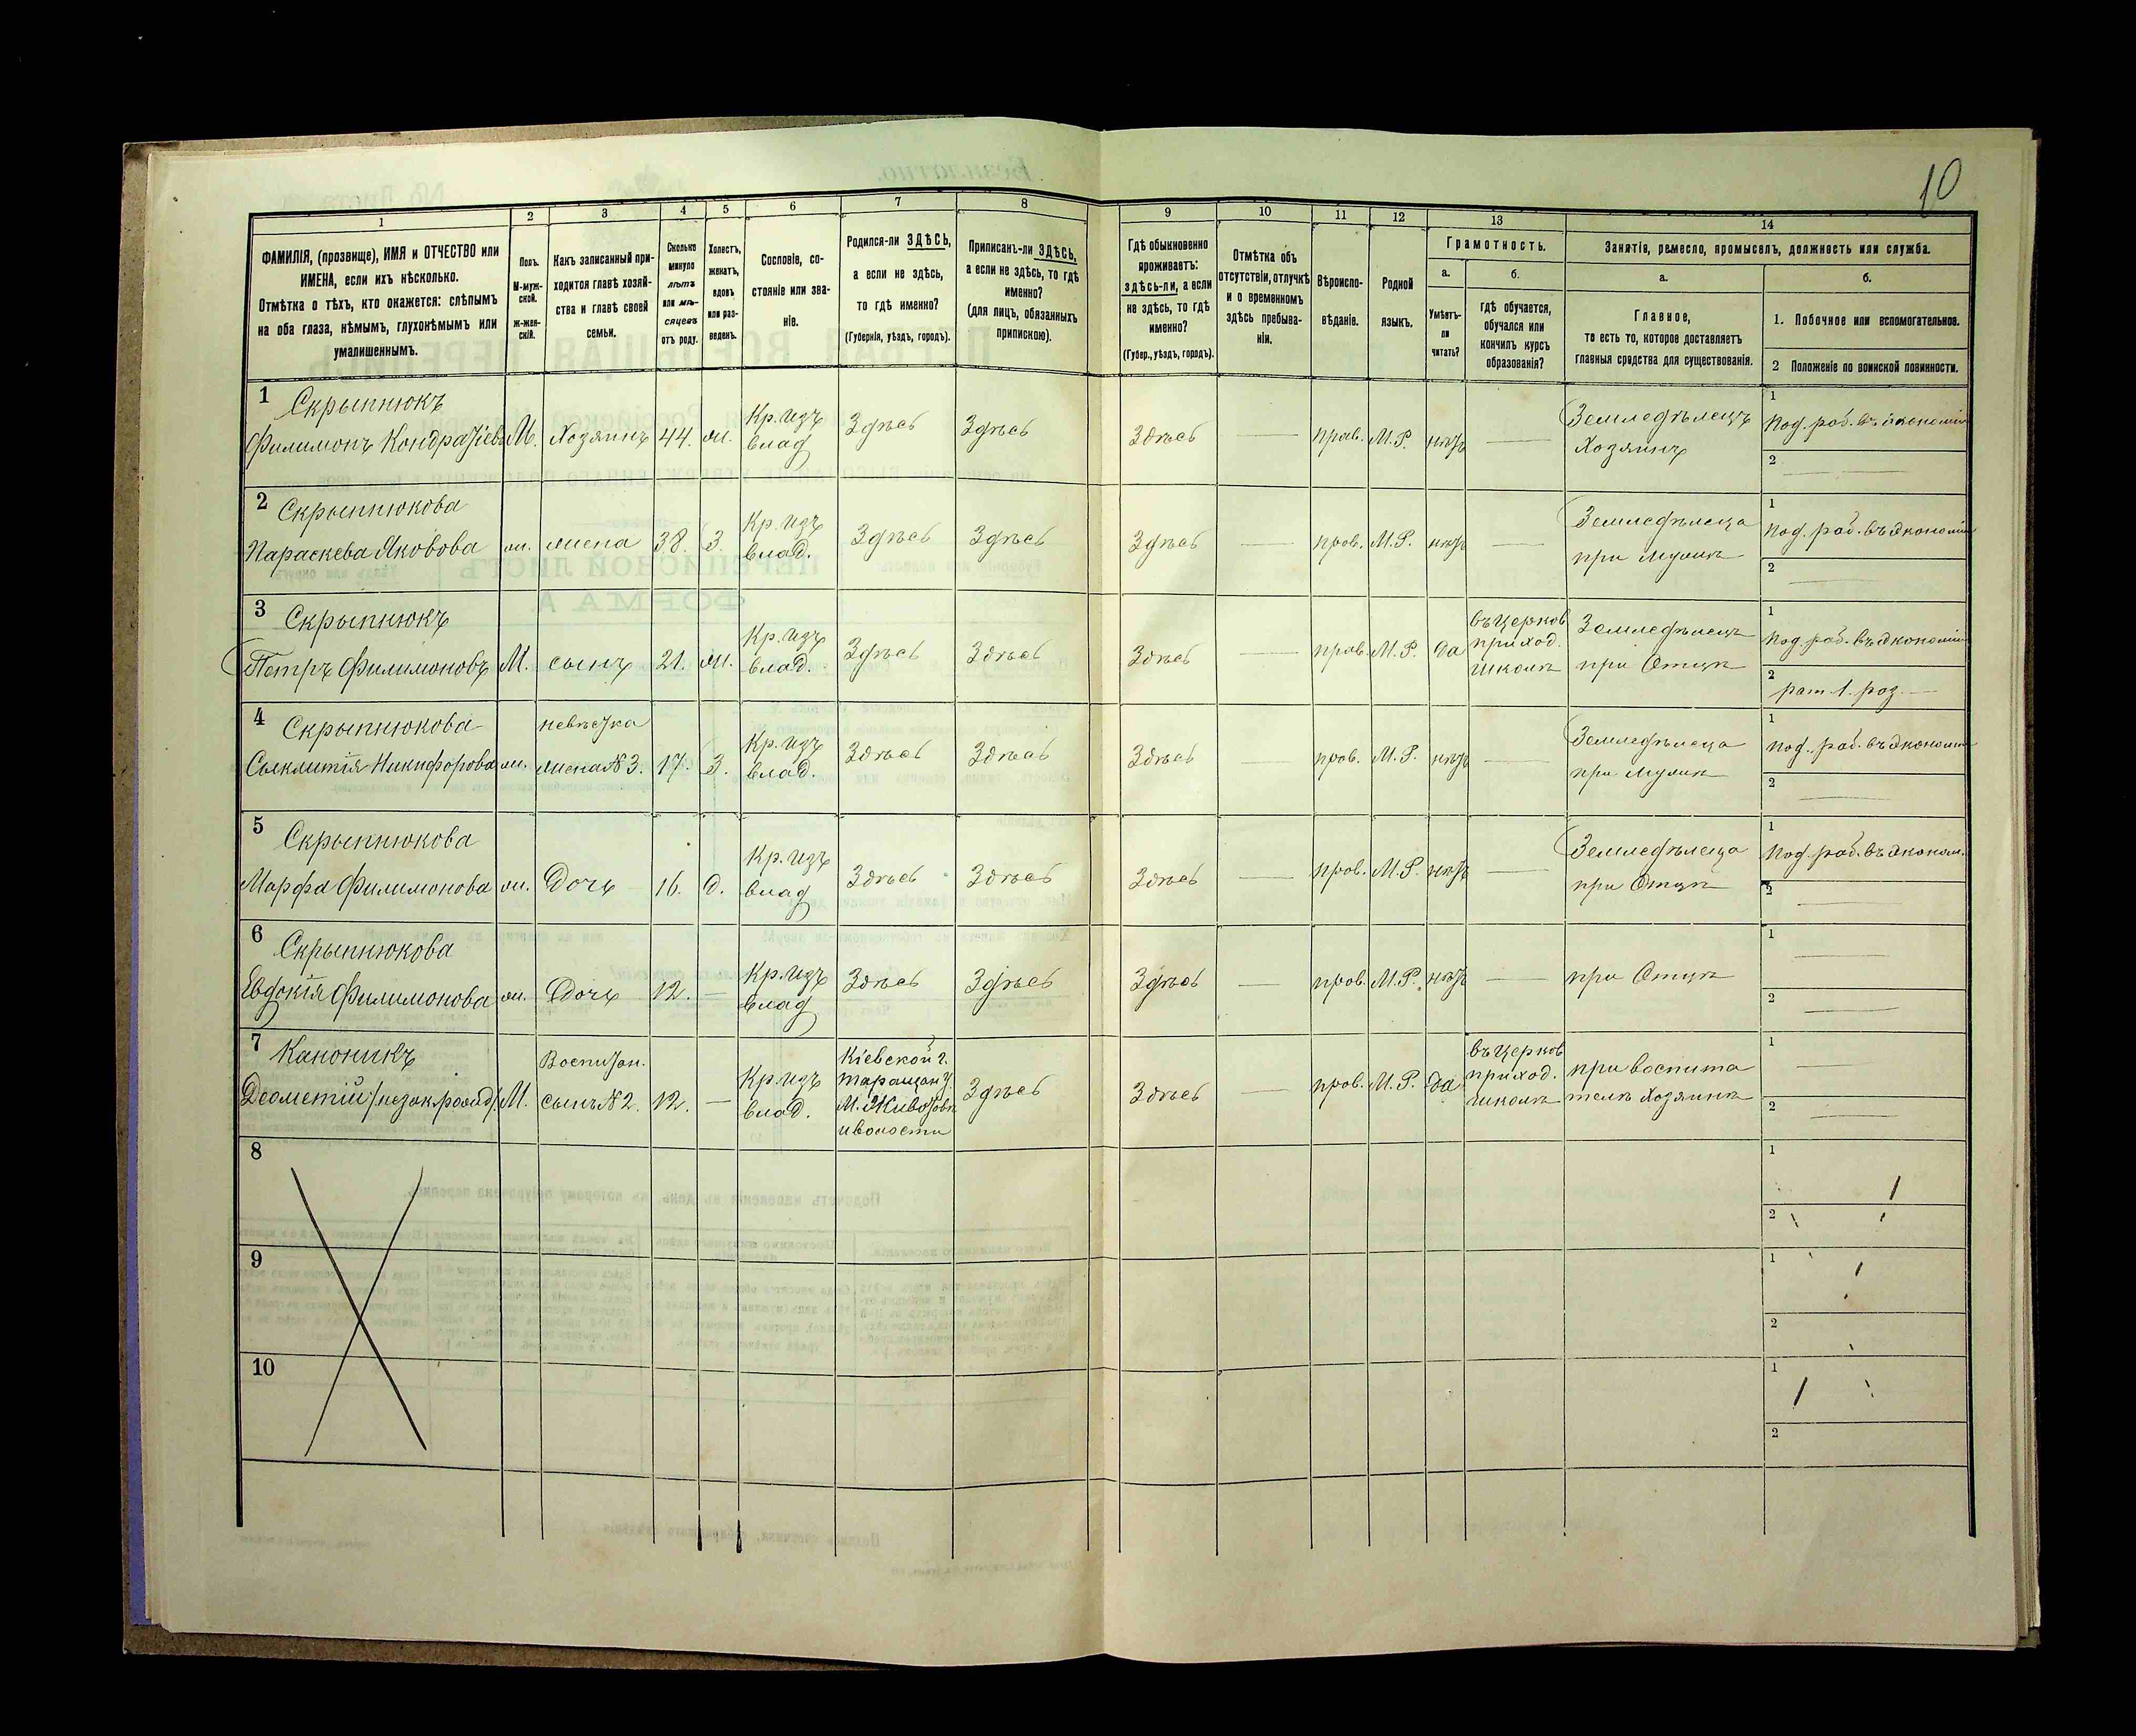 10
1
2
3
4
5
6
7
8
9
10
11
12
13
14
ФАМИЛІЯ, (прозвище), ИМЯ и ОТЧЕСТВО или
ИМЕНА, если ихъ нѣсколько.
Отмѣтка о тѣхъ, кто окажется: слѣпымъ
на оба глаза, нѣмымъ, глухонѣмымъ или
умалишеннымъ.
Полъ.
М-муж-
ской.
Ж-жен-
скій.
Какъ записанный при-
ходится главѣ хозяй-
ства и главѣ своей
семьи.
Сколько
минуло
лѣтъ
или мѣ-
сяцевъ
отъ роду.
Холостъ,
женатъ,
вдовъ
или раз-
веденъ.
Сословіе, со-
стояніе или зва-
ніе.
Родился-ли ЗДѢСЬ,
а если не здѣсь,
то гдѣ именно?
(Губернія, уѣздъ, городъ).
Приписанъ-ли ЗДѢСЬ,
а если не здѣсь, то гдѣ
именно?
(для лицъ, обязанныхъ
припискою).
Гдѣ обыкновенно
проживаетъ:
здѣсь-ли, а если
не здѣсь, то гдѣ
именно?
(Губер., уѣздъ, городъ).
Отмѣтка объ
отсутствіи, отлучкѣ
и о временномъ
здѣсь пребыва-
ніи.
Вѣроиспо-
вѣданіе.
Родной
языкъ.
Грамотность.
а.
б.
Умѣетъ-
ли
читать?
гдѣ обучается,
обучался или
кончилъ курсъ
образованія?
Занятія, ремесло, промыселъ, должность или служба.
а.
б.
Главное,
то есть то, которое доставляетъ
главныя средства для существованія.
1. Побочное или вспомогательное.
2 Положеніе по воинской повинности.
1
Скрыпнюкъ
Филимонъ Кондратіевъ М. Хозяинъ 44. ж.
Кр. изъ
влад
Здѣсь Здѣсь Здѣсь прав. М.Р. нѣтъ
Земледѣлецъ
Хозяинъ
1
Под. раб. въ экономіи
2
2
Скрыпнюкова
Параскева Яковова ж. жена 38. З.
Кр. изъ
влад.
Здѣсь Здѣсь Здѣсь прав. М.Р. нѣтъ
Земледѣлица
при Мужѣ
1
Под. раб. въ экономіи
2
3
Скрыпнюкъ
Петръ Филимоновъ М. сынъ 21. ж.
Кр. изъ
влад.
Здѣсь Здѣсь Здѣсь прав. М.Р. да
въ церков
приход.
школѣ
Земледѣлецъ
при Отцѣ
1
Под. раб. въ экономіи
2
рат. 1. раз.
4
Скрыпнюкова
Никифорова ж.
невѣстка
жена №3. 17. З.
Кр. изъ
влад.
Здѣсь Здѣсь Здѣсь прав. М.Р. нѣтъ
Земледѣлица
при Мужѣ
1
Под. раб. въ экономіи
2
5
Скрыпнюкова
Марфа Филимонова ж. Дочь 16. д.
Кр. изъ
влад
Здѣсь Здѣсь Здѣсь прав. М.Р. нѣтъ
Земледѣлица
при Отцѣ
1
Под. раб. въ эконом.
2
6
Скрыпнюкова
Евдокія Филимонова ж. Дочь 12.
Кр. изъ
влад
Здѣсь Здѣсь Здѣсь прав. М.Р. нѣтъ
при Отцѣ
1
2
7
Каноникъ
М.
Воспитан.
сынъ №2. 12.
Кр. изъ
влад.
Кіевской г.
Таращан у.
М. Животовк
и волости
Здѣсь Здѣсь прав. М.Р. да
въ церков
приход.
школѣ
при воспита
телѣ Хозяинѣ
1
2
8
1
2
9
1
2
10
1
2